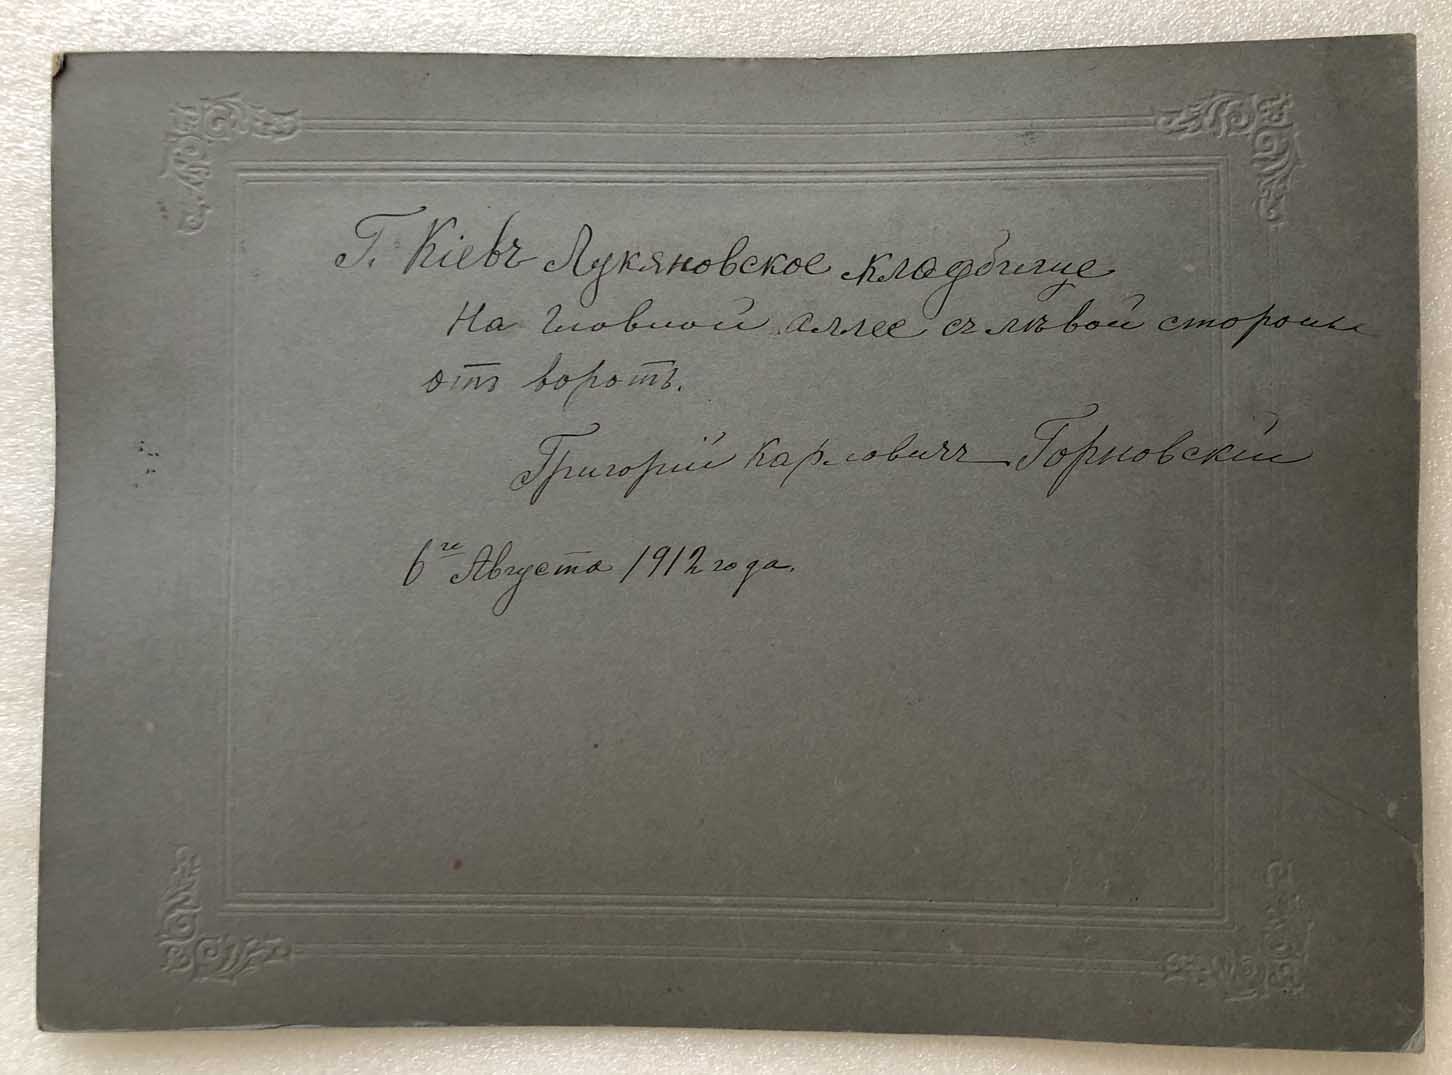 Г. Кіевъ Лукяновское кладбище
На Главной аллее съ лѣвой стороны
отъ воротъ.
Григорій Карловичъ Горновскій
6го Августа 1912 года.